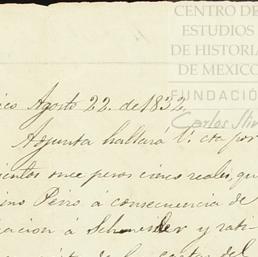 CENTRO DE
ESTUDIOS
DE HISTORIA
DE MEXICO
FUNDACIÓ
Carlos Sli
ico Agosto 22. de 1832
Adjunta hallará V. cta por
cientos once pesos cinco reales, qu
ino Peiro á consecuencia de
iacion á Schneider y rati